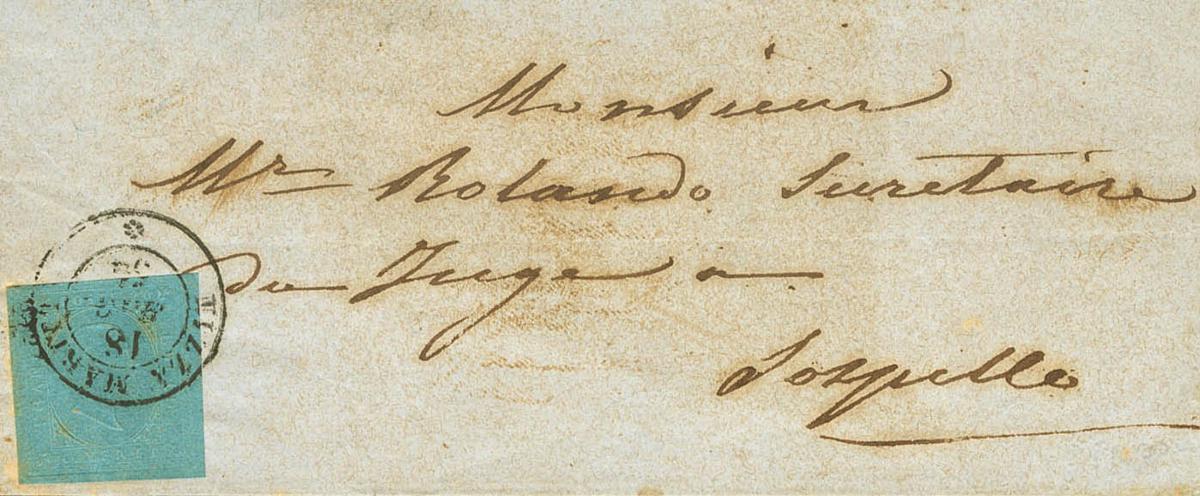 Monsieur
Mr Rolando Secretaire
du Juge a
Sospello
18